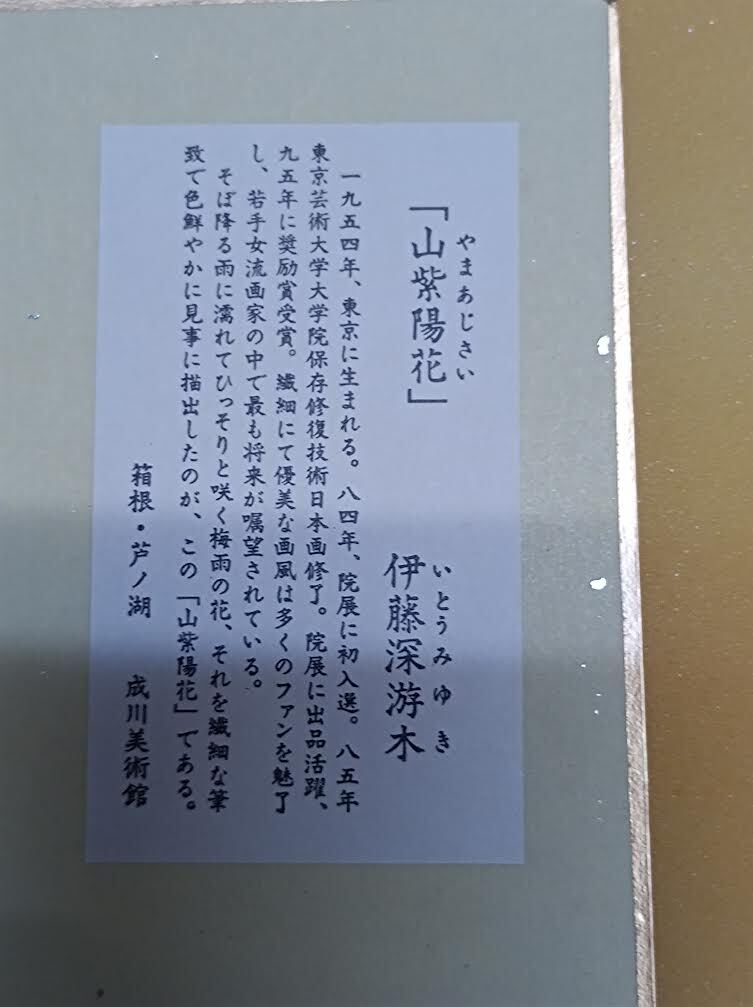 「山紫陽花」
やまあじさい
伊藤深游木
いとうみゆき
一九五四年、東京に生まれる。八四年、院展に初入選。八五年
東京芸術大学大学院保存修復技術日本画修了。院展に出品活躍、
九五年に奨励賞受賞。繊細にて優美な画風は多くのファンを魅了
し、若手女流画家の中で最も将来が嘱望されている。
そぼ降る雨に濡れてひっそりと咲く梅雨の花、それを繊細な筆
致で色鮮やかに見事に描出したのが、この「山紫陽花」である。
箱根・芦ノ湖 成川美術館